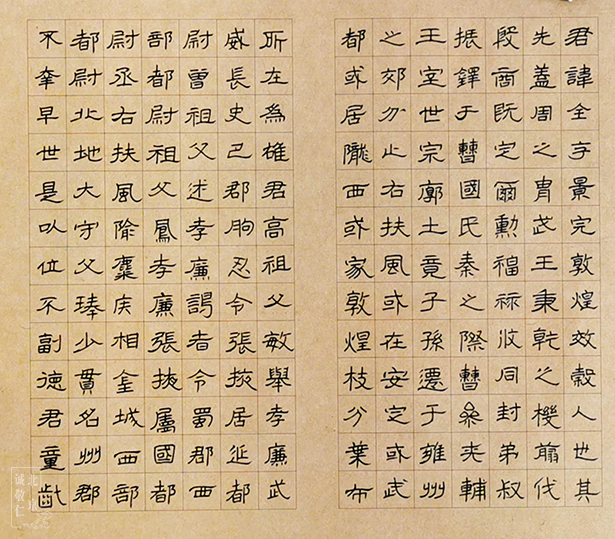 君諱全字景完敦煌效穀人也其
先蓋周之胄武王秉乾之機翦伐
殷商既定爾勳福祿攸同封弟叔
振鐸于曹國氏秦之際曹參夾輔
王室世宗廓土竟子孫遷于雍州
之郊分止右扶風或在安定或武
都或居隴西或家敦煌枝分葉布
所在為雄君高祖父敏舉孝廉武
威長史巴郡朐忍令張掖居延都
尉曾祖父述孝廉謁者令蜀郡西
部都尉祖父鳳孝廉張掖屬國都
尉丞右扶風隃麋侯相金城西部
都尉北地大守父琫少貫名州郡
不幸早世是以位不副德君童齔
誠敬仁